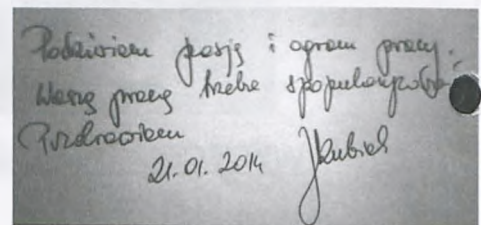 Podziwiam pasję i ogrom pracy.
Waszą pracę trzeba spopularyzować
Pozdrawiam
21.01.2014 JKubiel